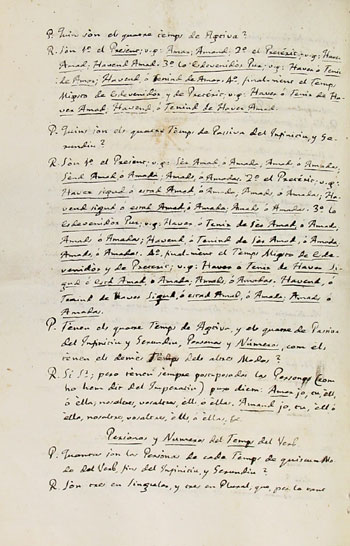 P. Quins son el quatre temps de Activa?
R. Són 1º. el Present; v.g: Amar, Amant. 2º. el Preterit; v.g: Haver
Amat, Havent Amat. 3º. lo Esdevenidor Pur; v.g: Haver ó Tenir
de Amar; Havent, ó Tenint de Amar. 4º. finalment el Temps
Migtre de Esdevenidor, y de Preterit; v.g: Haver ó Tenir de Ha-
ver Amat, Havent, ó Tenint de Haver Amat.
P. Quins son els quatre Temps de Passiva del Infinitiu, y Ge-
rundiu?
R. Són 1º. el Present; v.g: Ser Amat, ó Amada, Amats, ó Amadas;
Sent Amat, ó Amada; Amats, ó Amadas. 2º. el Preterit; v.g:
Haver sigut ó estat Amat, ó Amada, Amats, ó Amadas; Ha-
vent sigut ó estat Amat, ó Amada, Amats, ó Amadas. 3º. lo
Esdevenidor Pur; v.g: Haver ó Tenir de Ser Amat, ó Amada,
Amats, ó Amadas; Havent, ó Tenint de Ser Amat, ó Amada,
Amats, ó Amadas. 4º. finalment el Temps Migtre de Esde-
venidor y de Preterit; v.g: Haver ó Tenir de Haver Si-
gut ó estat Amat, ó Amada, Amats, ó Amadas. Havent, ó
Tenint de Haver Sigut, ó estat Amat, ó Amada, Amats, ó
Amadas.
P. Tenen els quatre Temps de Activa, y els quatre de Passiva
del Infinitiu, y Gerundiu, Personas y Números, com els
tenen els demés Temps dels altres Modos?
R. Si Sr; pero tenen sempre postposadas las Personas (com
ho hem dit del Imperatiu) puix diem: Amar jo, tu, ell,
ó ella, nosaltres, vosaltres, ells ó ellas. Amant jo, tu, ell ó
ella, nosaltres, vosaltres, ells ó ellas, &c.
Personas y Numeros del Temps del Verb
P. Quantas son las Personas de cada Temps de quiscun Mo-
do del Verb, fins del Infinitiu, y Gerundiu?
R. Són tres en Singular, y tres en Plural, que, per lo